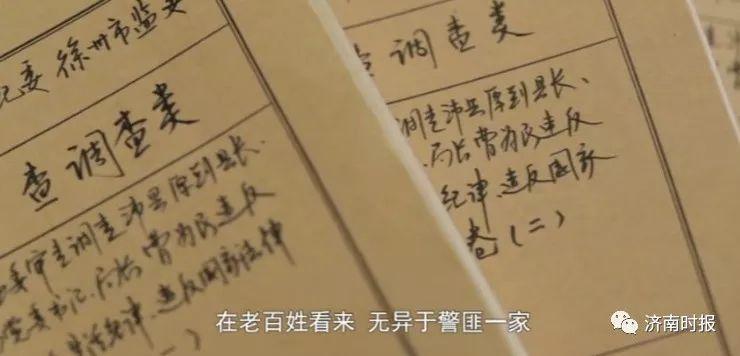 纪委 徐州市监委
查调查类
委审查调查沛县原副县长、
党委书记、局长 曾为民违反
生活纪律、违反国家法律
(一)
查调查类
调查沛县原副县长、
局长 曾为民违反
纪律、违反国家
卷(二)
在老百姓看来 无异于警匪一家
济南时报